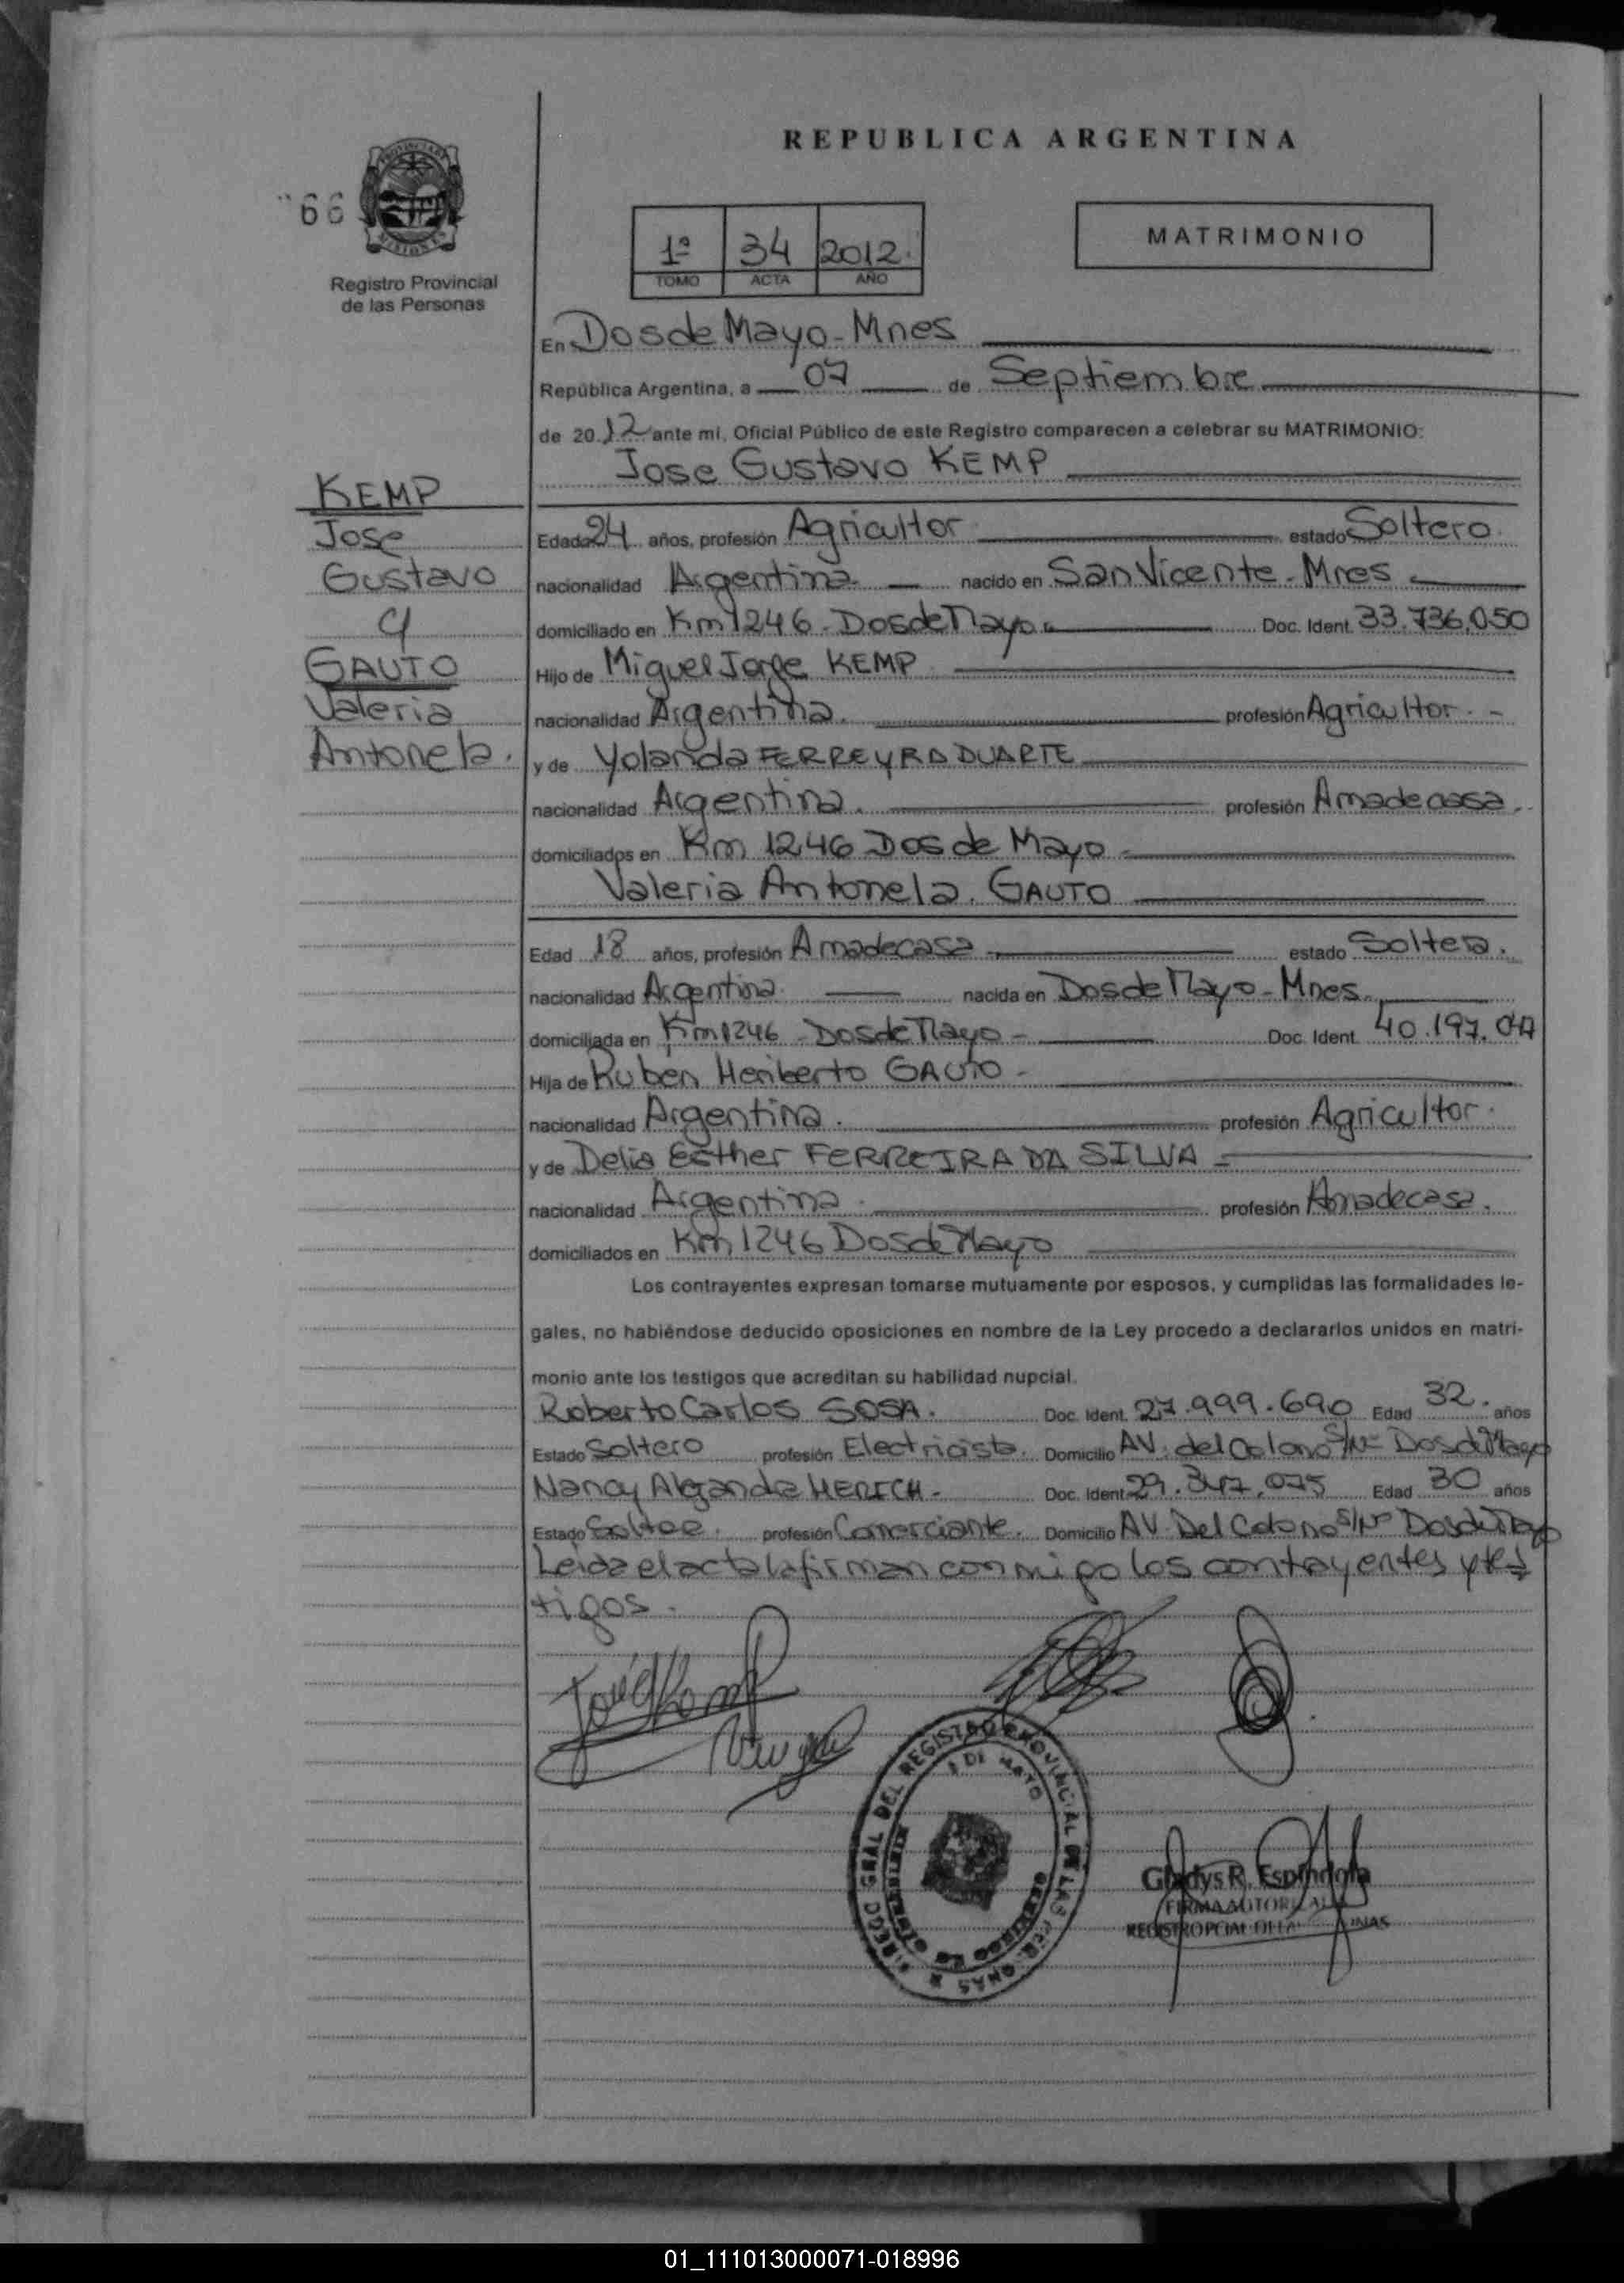 REPUBLICA ARGENTINA
66
Registro Provincial
de las Personas
1ª 34 2012.
TOMO ACTA AÑO
MATRIMONIO
En Dos de Mayo - Mnes
República Argentina, a 07 de Septiembre
de 2012 ante mi, Oficial Público de este Registro comparecen a celebrar su MATRIMONIO:
Jose Gustavo KEMP
KEMP
Jose
Gustavo
GAUTO
Valeria
Antonela.
Edad 24 años, profesión Agricultor estado Soltero.
nacionalidad Argentina nacido en San Vicente - Mnes
domiciliado en Km 1246 - Dos de Mayo Doc. Ident. 33.736.050
Hijo de Miguel Jorge KEMP
nacionalidad Argentina. profesión Agricultor. -
y de Yolanda FERREYRA DUARTE
nacionalidad Argentina. profesión Ama de casa.
domiciliados en Km 1246 Dos de Mayo
Valeria Antonela. GAUTO
Edad 18 años, profesión Ama de casa estado Soltera.
nacionalidad Argentina nacida en Dos de Mayo - Mnes.
domiciliada en Km 1246 - Dos de Mayo - Doc. Ident. 40.197.
Hija de Ruben Heriberto GAUTO -
nacionalidad Argentina. profesión Agricultor.
y de Delia Esther FERREIRA DA SILVA -
nacionalidad Argentina. profesión Ama de casa.
domiciliados en Km 1246 Dos de Mayo
Los contrayentes expresan tomarse mutuamente por esposos, y cumplidas las formalidades le-
gales, no habiéndose deducido oposiciones en nombre de la Ley procedo a declararlos unidos en matri-
monio ante los testigos que acreditan su habilidad nupcial.
Roberto Carlos SOSA. Doc. Ident. 27.999.690 Edad 32. años
Estado Soltero profesión Electricista. Domicilio AV. del Colono S/Nº Dos de Mayo
Nancy Alejandra HERICH. Doc. Ident. 29.347.075 Edad 30 años
Estado profesión Comerciante. Domicilio AV. Del Colono S/Nº Dos de Mayo
Leida el acta la firman conmigo los contrayentes y tes
tigos.
Gladys R. Espindola
FIRMA AUTORIZADA
01_111013000071-018996